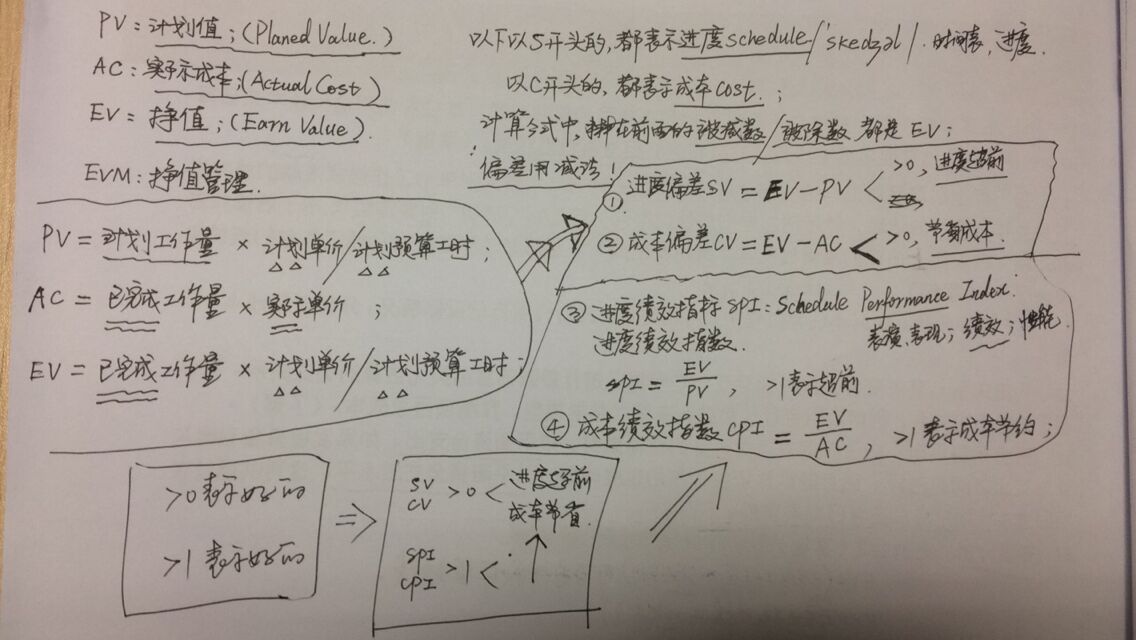 PV：计划值；(Planed Value.)
AC：实际成本；(Actual Cost)
EV：挣值；(Earn Value).
EVM：挣值管理.
以下以S开头的，都表示进度schedule/'skedʒəl/.时间表，进度.
以C开头的，都表示成本cost.；
计算公式中，排在前面的被减数/被除数 都是EV；
偏差用减法！
①进度偏差SV = EV-PV < >0，进度超前
②成本偏差CV = EV-AC < >0，节省成本.
PV = 计划工作量 × 计划单价/计划预算工时；
AC = 已完成工作量 × 实际单价；
EV = 已完成工作量 × 计划单价/计划预算工时；
③进度绩效指标SPI：Schedule Performance Index.
进度绩效指数.
表演、表现；绩效；性能.
SPI = EV/PV，>1表示超前.
④成本绩效指数CPI = EV/AC，>1表示成本节约；
>0表示好的
>1表示好的
⇒
SV
CV >0 < 进度超前
成本节省.
SPI
CPI >1 <